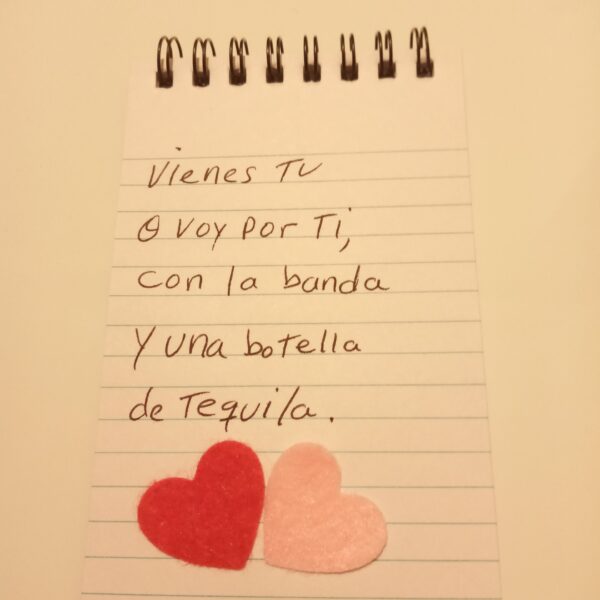 Vienes Tu
O voy por Ti,
con la banda
Y una botella
de Tequila.